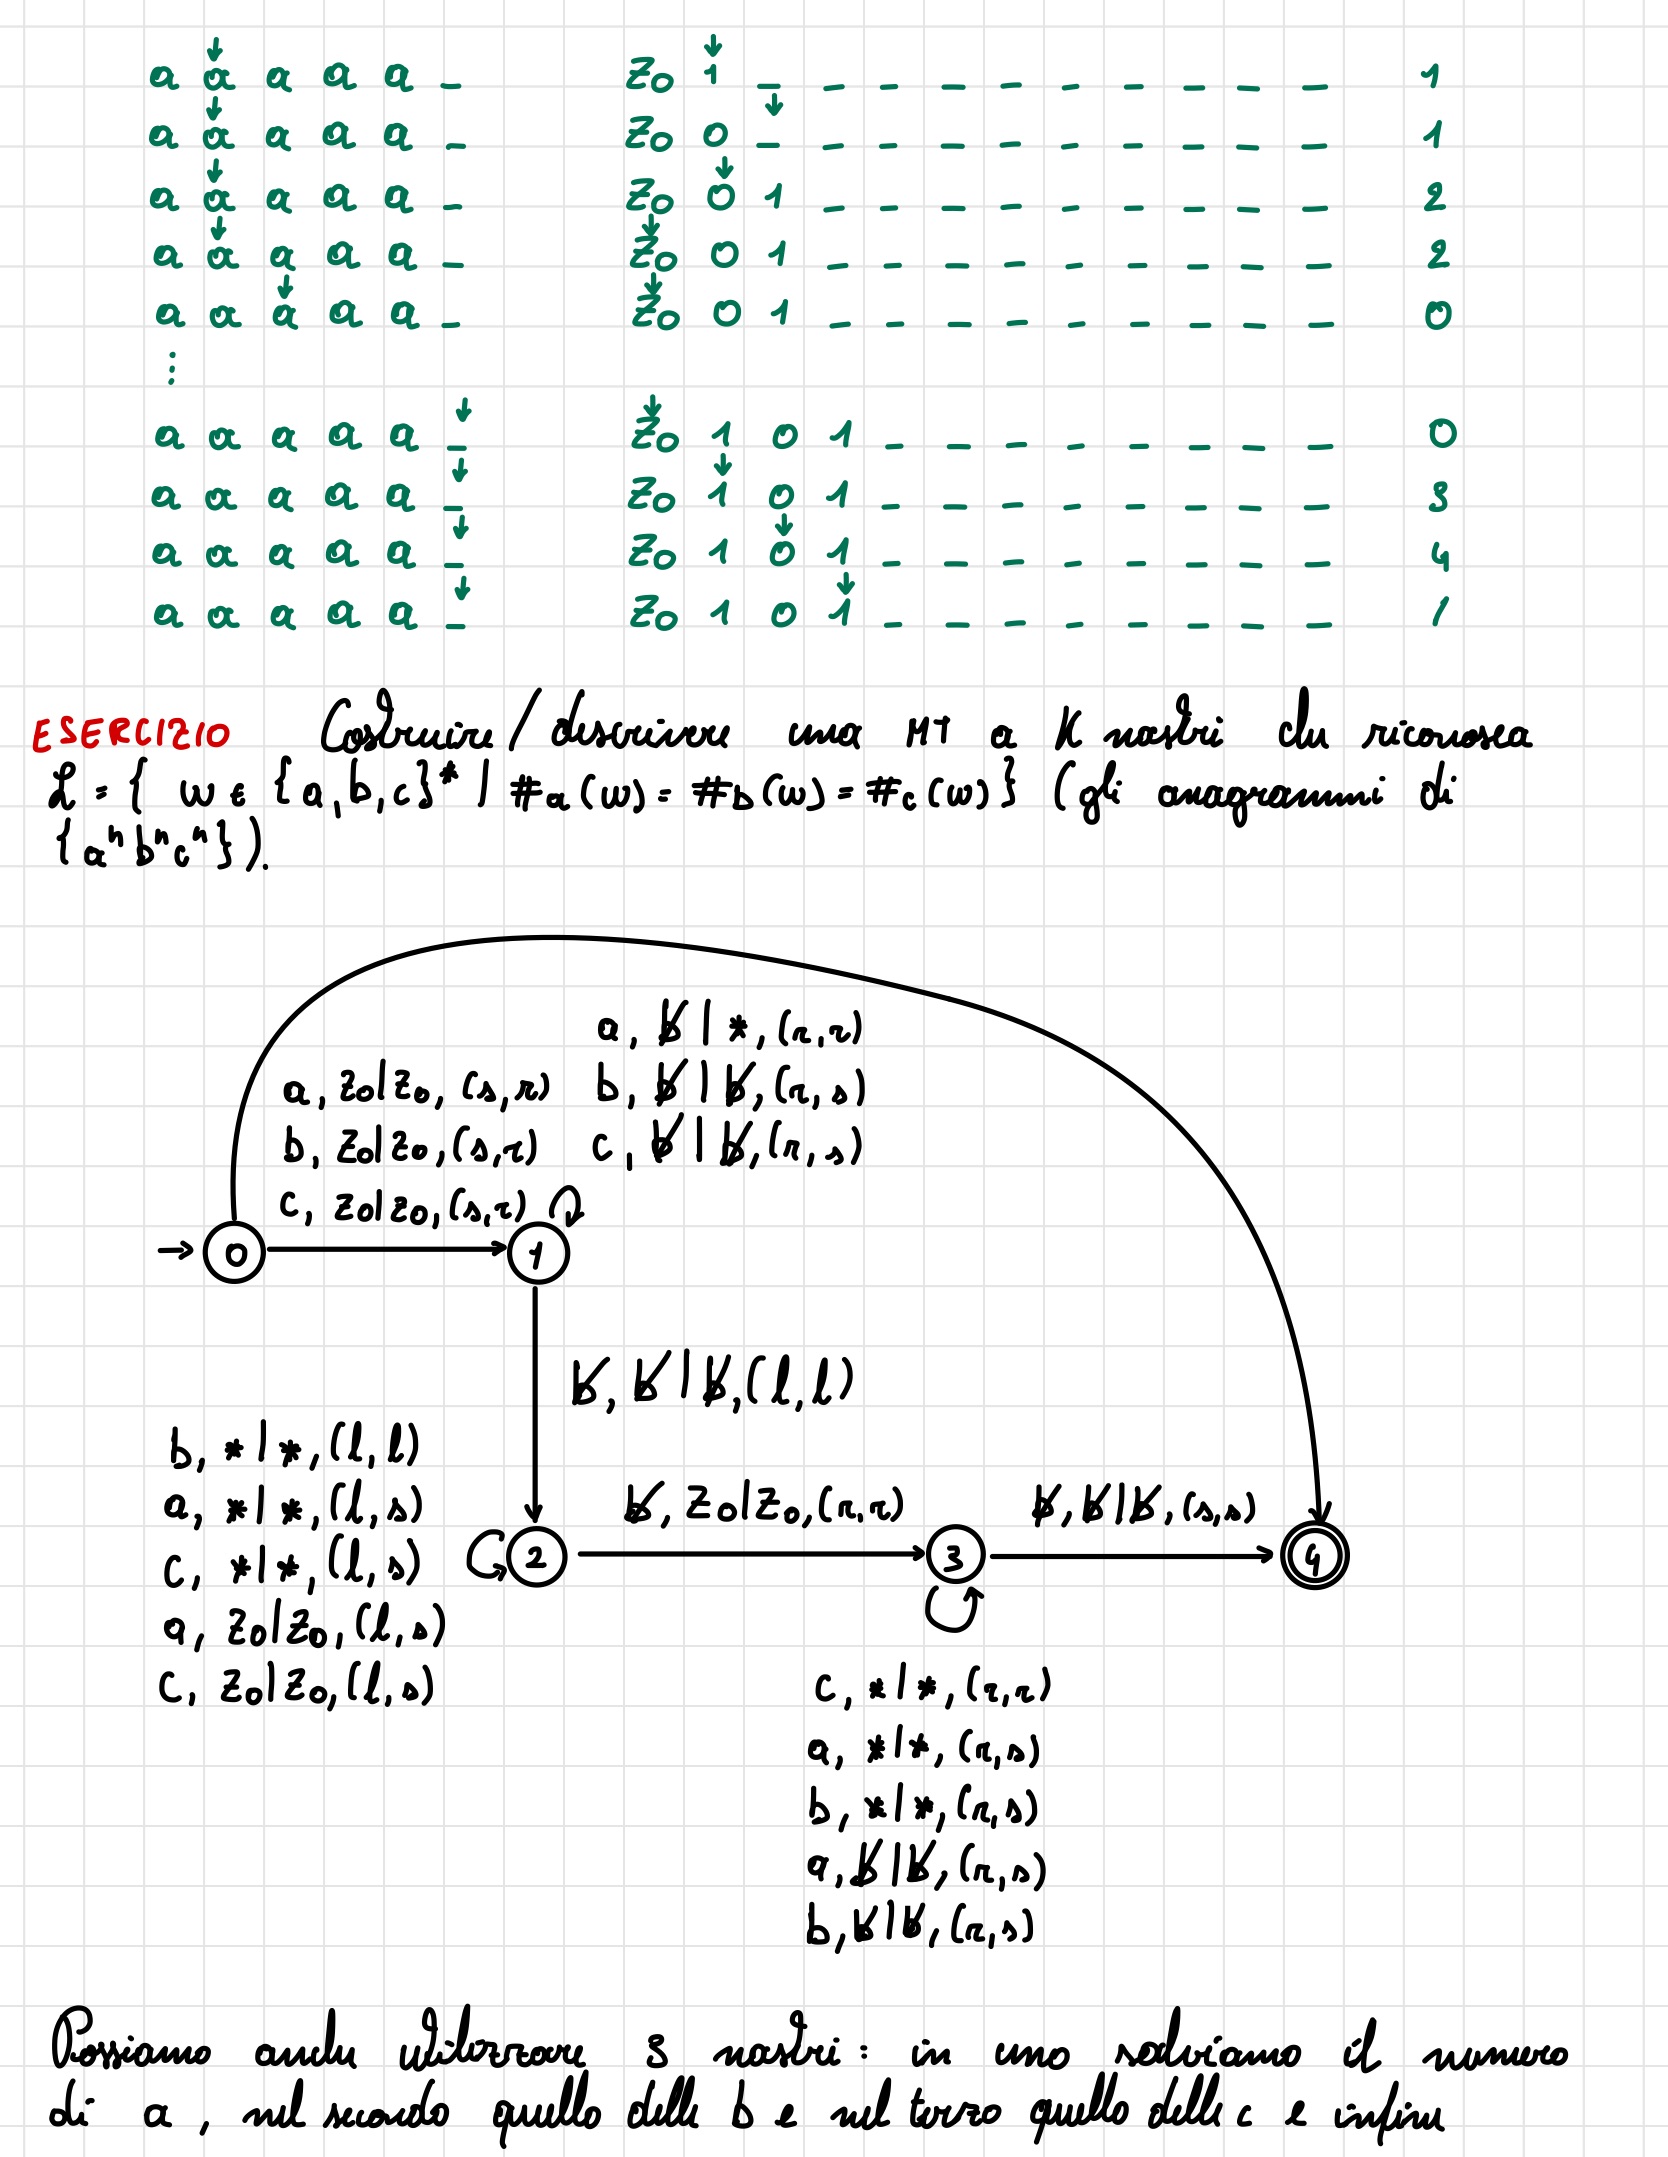 a a a a a _ Z₀ 1 _ _ _ _ _ _ _ _ _ _ 1
a a a a a _ Z₀ 0 _ _ _ _ _ _ _ _ _ _ 1
a a a a a _ Z₀ 0 1 _ _ _ _ _ _ _ _ _ 2
a a a a a _ Z₀ 0 1 _ _ _ _ _ _ _ _ _ 2
a a a a a _ Z₀ 0 1 _ _ _ _ _ _ _ _ _ 0
⋮
a a a a a _ Z₀ 1 0 1 _ _ _ _ _ _ _ _ 0
a a a a a _ Z₀ 1 0 1 _ _ _ _ _ _ _ _ 3
a a a a a _ Z₀ 1 0 1 _ _ _ _ _ _ _ _ 4
a a a a a _ Z₀ 1 0 1 _ _ _ _ _ _ _ _ /
ESERCIZIO Costruire/descrivere una MT a K nastri che riconosca
L = { w ∈ {a,b,c}* | #a(w) = #b(w) = #c(w)} (gli anagrammi di
{aⁿbⁿcⁿ}).
a, ƀ | *, (r,r)
b, ƀ | ƀ, (r,s)
c, ƀ | ƀ, (r,s)
a, Z₀|Z₀, (s,r)
b, Z₀|Z₀, (s,r)
c, Z₀|Z₀, (s,r)
0
1
ƀ, ƀ | ƀ, (l,l)
b, *|*, (l,l)
a, *|*, (l,s)
c, *|*, (l,s)
a, Z₀|Z₀, (l,s)
c, Z₀|Z₀, (l,s)
2
ƀ, Z₀|Z₀, (r,r)
3
ƀ, ƀ|ƀ, (s,s)
4
c, *|*, (r,r)
a, *|*, (r,s)
b, *|*, (r,s)
a, ƀ|ƀ, (r,s)
b, ƀ|ƀ, (r,s)
Possiamo anche utilizzare 3 nastri: in uno salviamo il numero
di a, nel secondo quello delle b e nel terzo quello delle c e infine